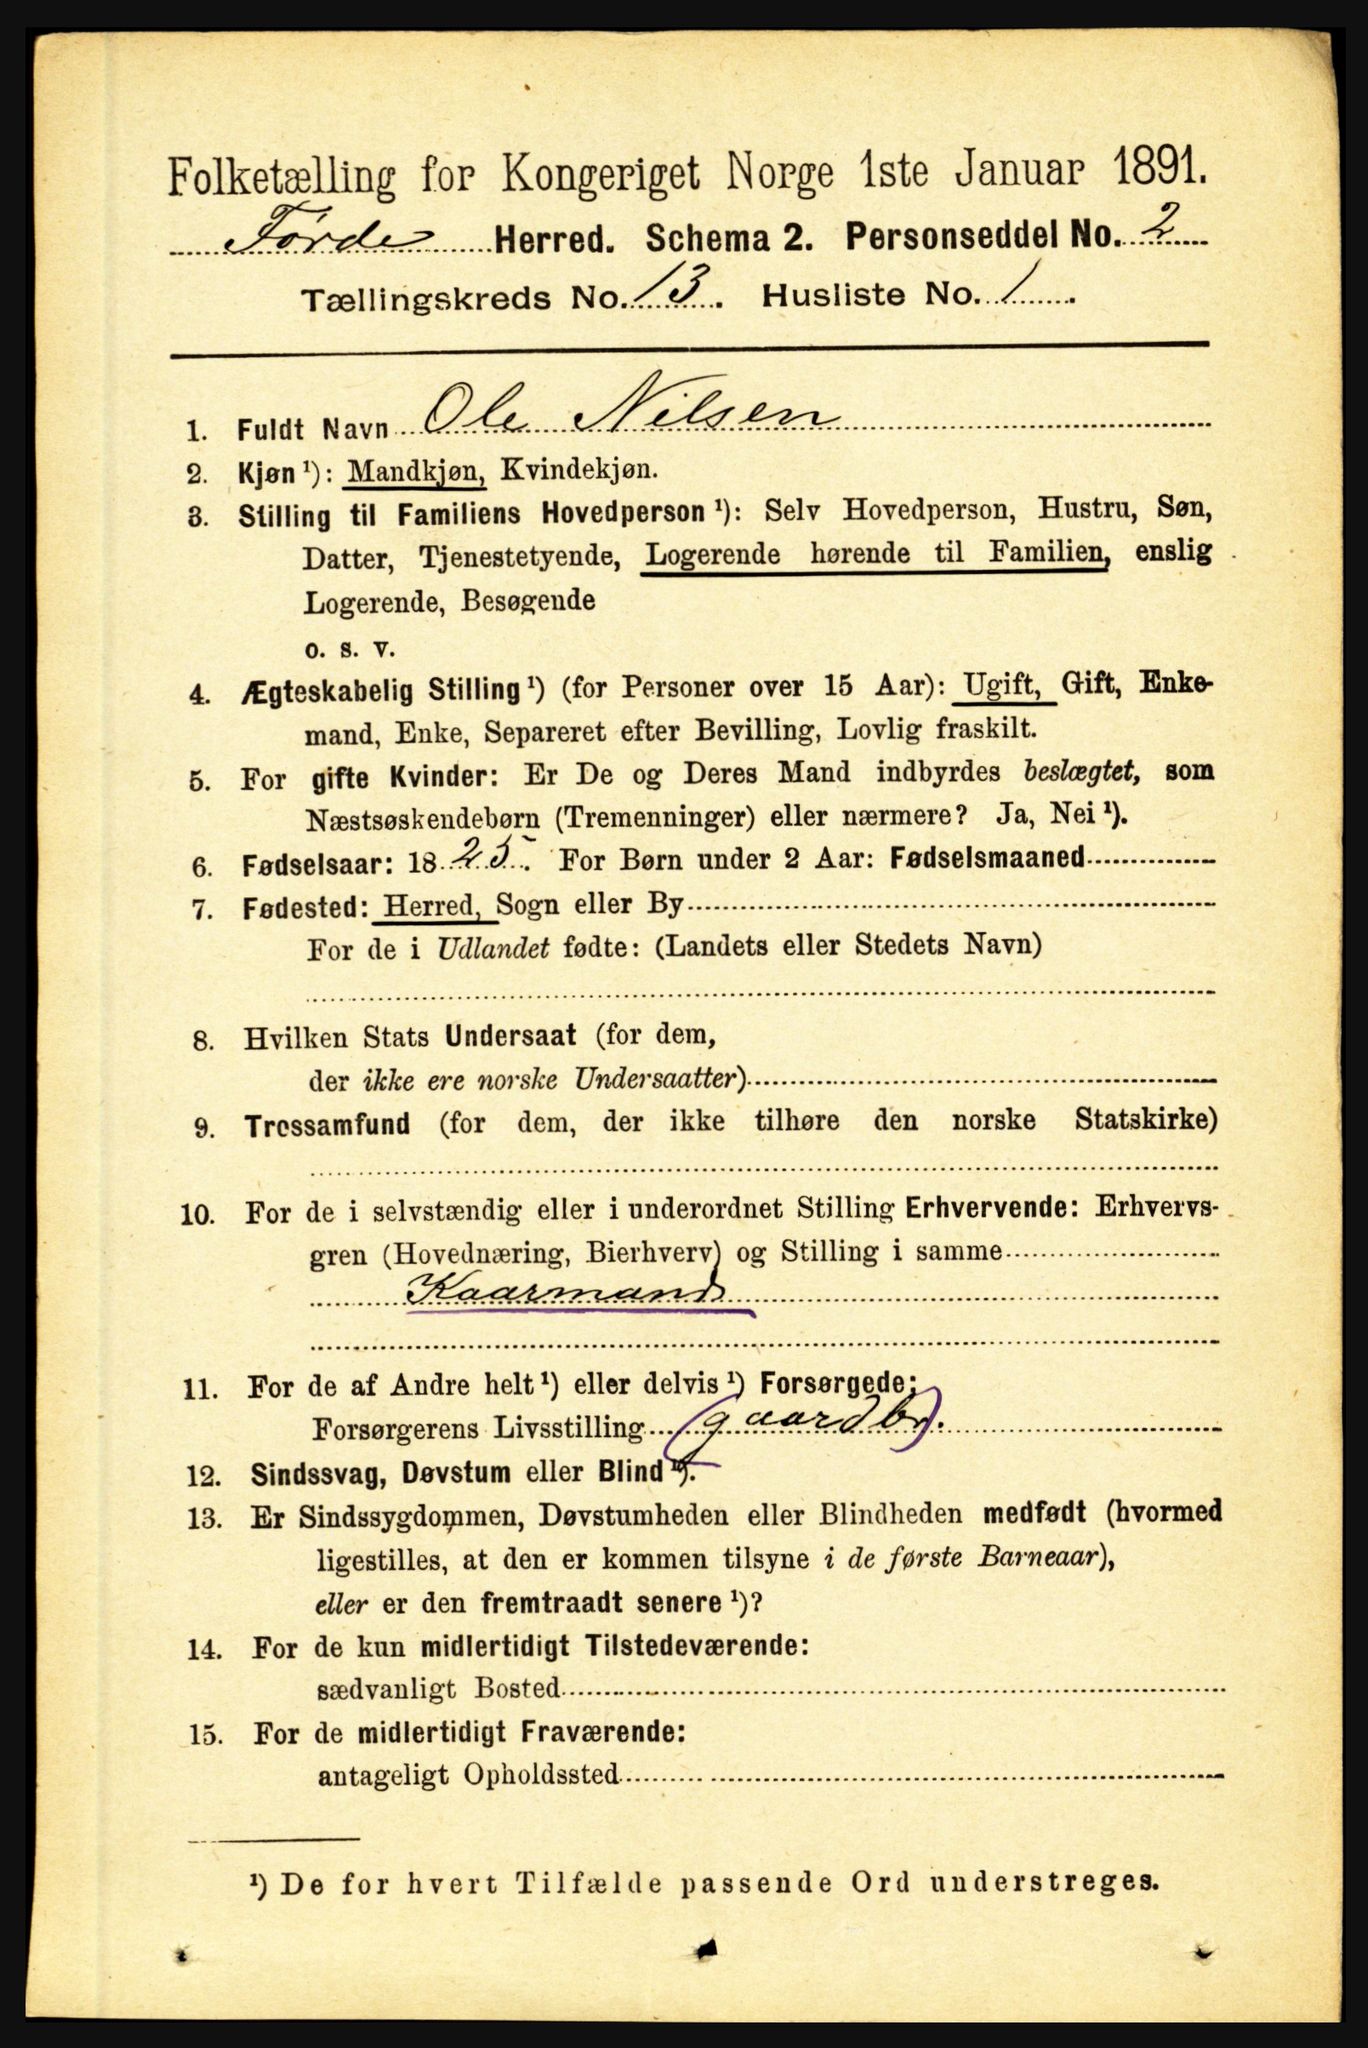 Folketælling for Kongeriget Norge 1ste Januar 1891.
Førde Herred. Schema 2. Personseddel No. 2
Tællingskreds No. 13. Husliste No. 1.
1. Fuldt Navn Ole Nilsen
2. Kjøn ¹): Mandkjøn, Kvindekjøn.
3. Stilling til Familiens Hovedperson ¹): Selv Hovedperson, Hustru, Søn,
Datter, Tjenestetyende, Logerende hørende til Familien, enslig
Logerende, Besøgende
o. s. v.
4. Ægteskabelig Stilling ¹) (for Personer over 15 Aar): Ugift, Gift, Enke-
mand, Enke, Separeret efter Bevilling, Lovlig fraskilt.
5. For gifte Kvinder: Er De og Deres Mand indbyrdes beslægtet, som
Næstsøskendebørn (Tremenninger) eller nærmere? Ja, Nei ¹).
6. Fødselsaar: 1825. For Børn under 2 Aar: Fødselsmaaned
7. Fødested: Herred, Sogn eller By
For de i Udlandet fødte: (Landets eller Stedets Navn)
8. Hvilken Stats Undersaat (for dem,
der ikke ere norske Undersaatter)
9. Trossamfund (for dem, der ikke tilhøre den norske Statskirke)
10. For de i selvstændig eller i underordnet Stilling Erhvervende: Erhvervs-
gren (Hovednæring, Bierhverv) og Stilling i samme
Kaarmand
11. For de af Andre helt ¹) eller delvis ¹) Forsørgede:
Forsørgerens Livsstilling (gaardbr).
12. Sindssvag, Døvstum eller Blind ¹).
13. Er Sindssygdommen, Døvstumheden eller Blindheden medfødt (hvormed
ligestilles, at den er kommen tilsyne i de første Barneaar),
eller er den fremtraadt senere ¹)?
14. For de kun midlertidigt Tilstedeværende:
sædvanligt Bosted
15. For de midlertidigt Fraværende:
antageligt Opholdssted
¹) De for hvert Tilfælde passende Ord understreges.